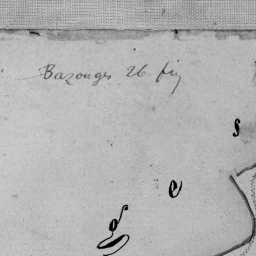 Bazouges 26 fig
s
e
g